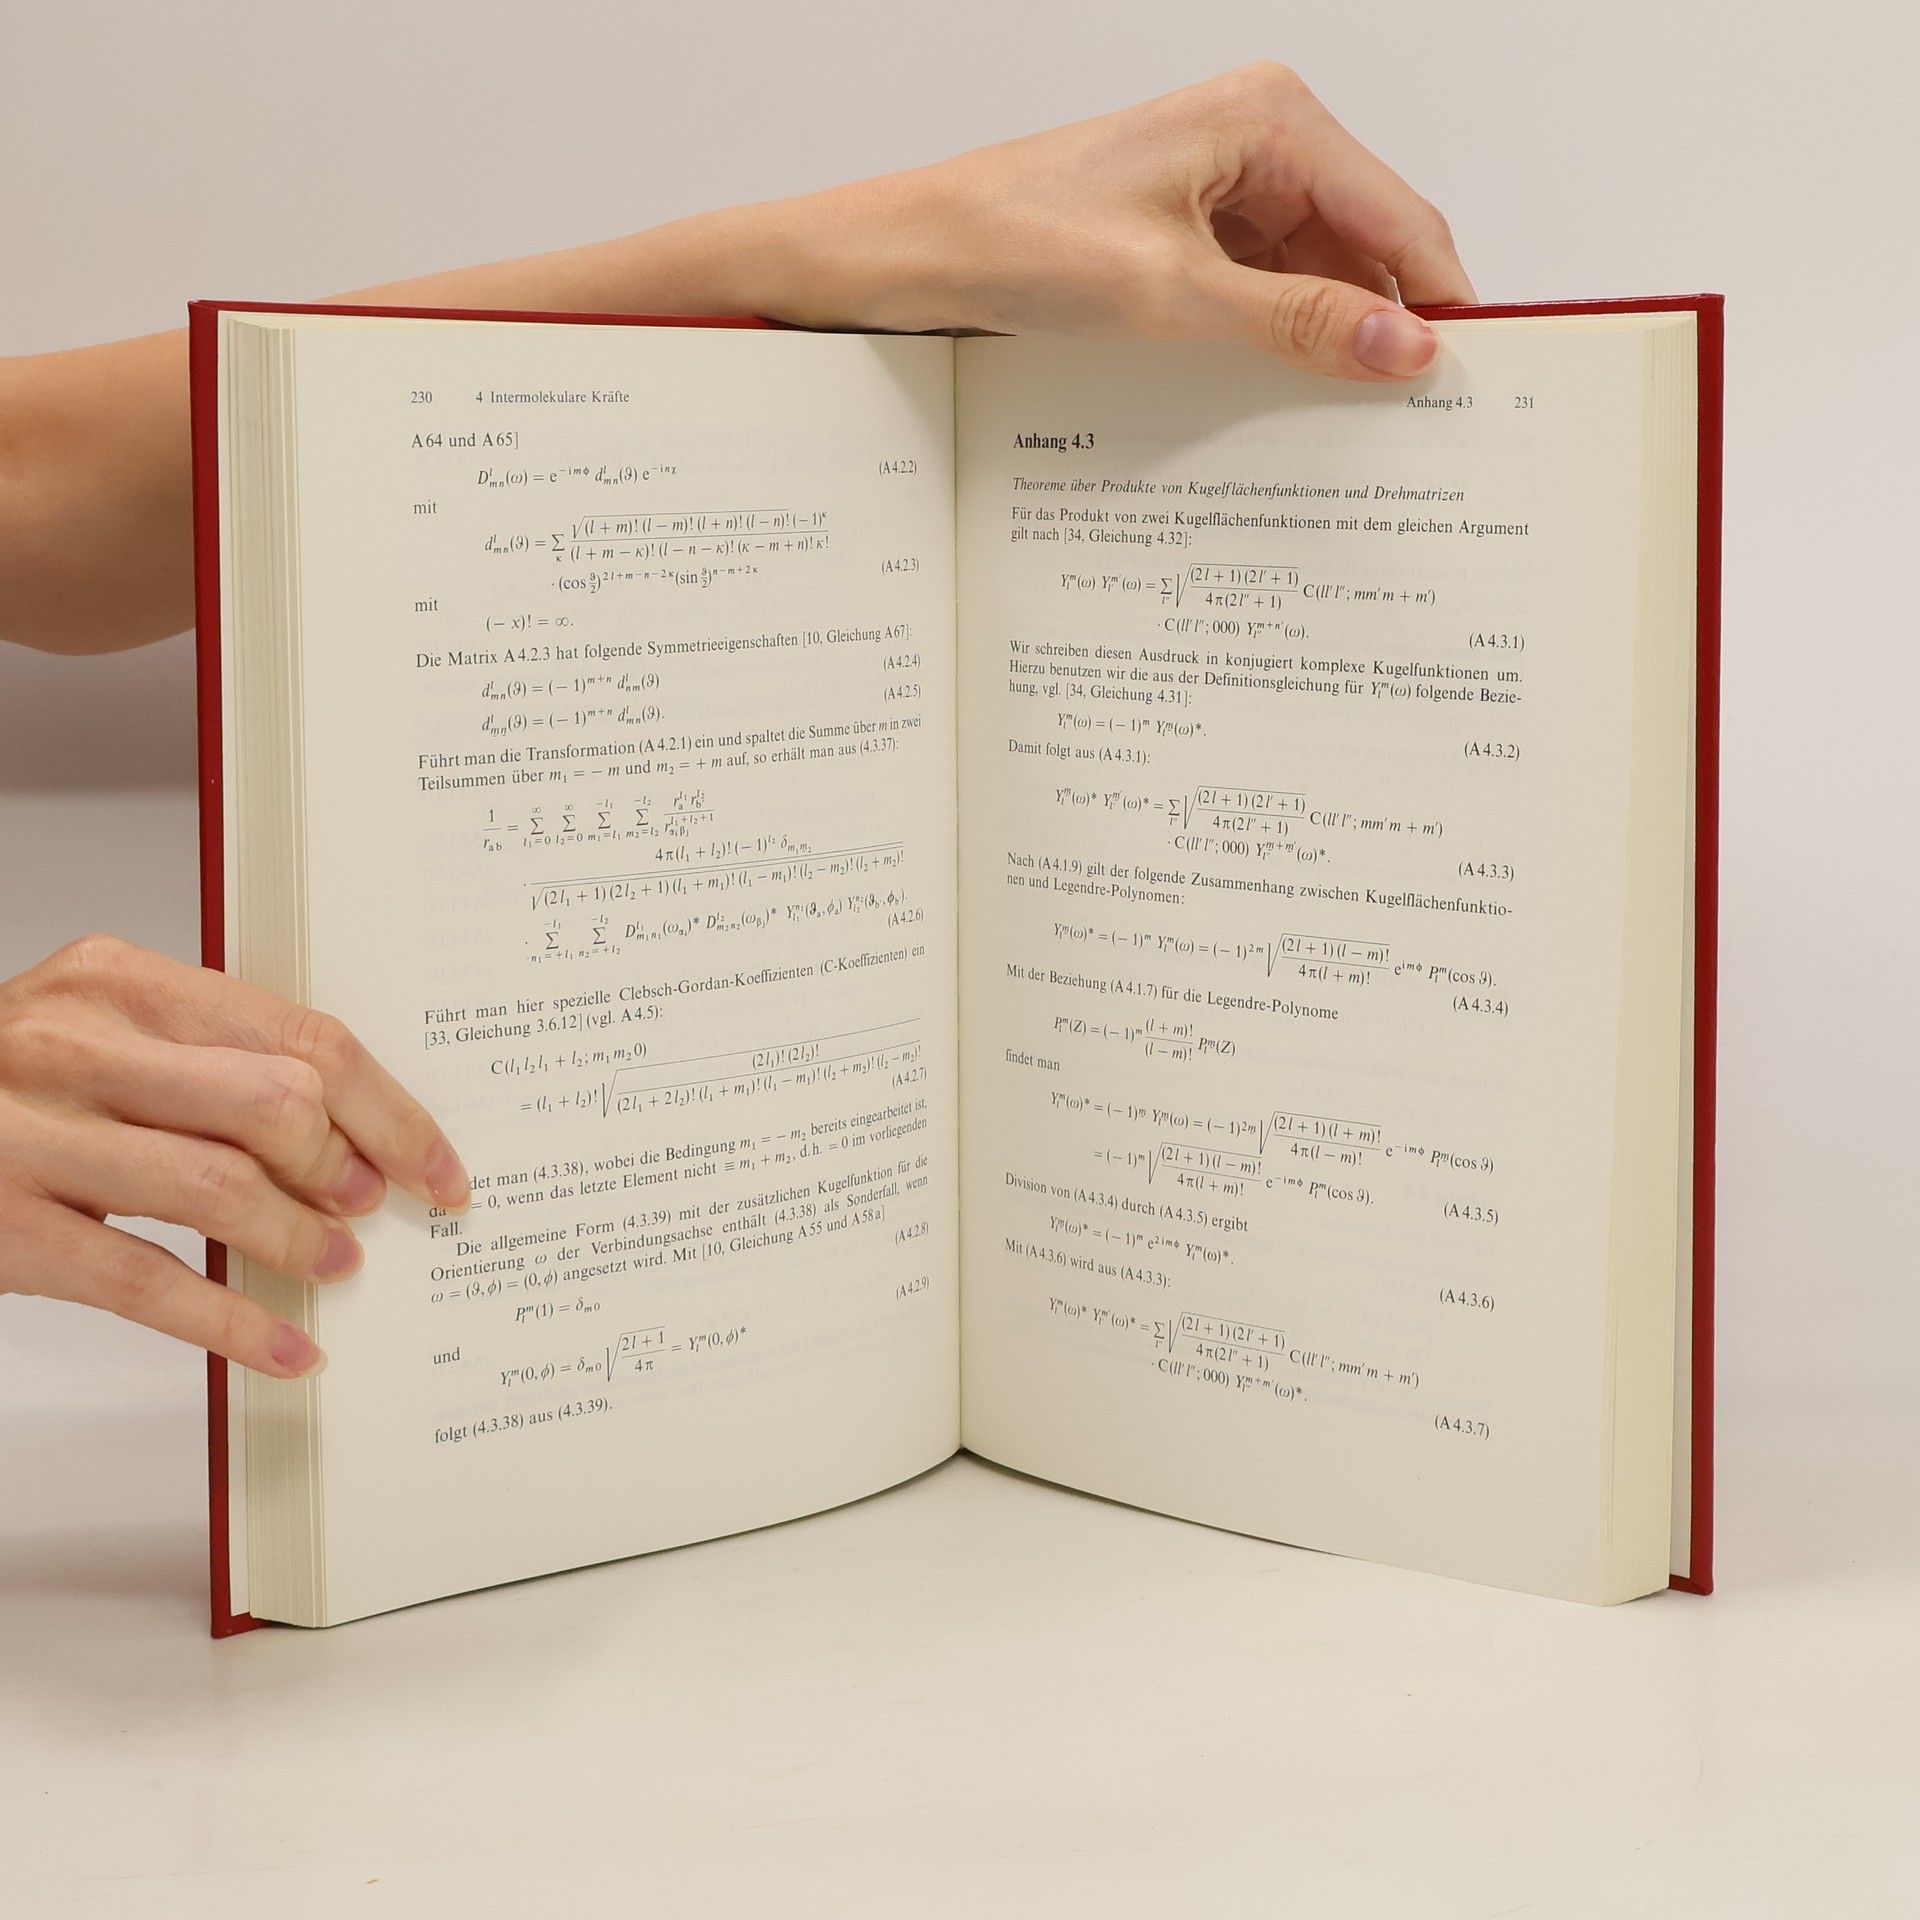 230 4 Intermolekulare Kräfte
A 64 und A 65]
Dˡₘₙ(ω) = e⁻ⁱᵐᶲ dˡₘₙ(ϑ) e⁻ⁱⁿᵡ (A 4.2.2)
mit
dˡₘₙ(ϑ) = Σ_κ √((l + m)! (l − m)! (l + n)! (l − n)!) (−1)^κ / ((l + m − κ)! (l − n − κ)! (κ − m + n)! κ!)
· (cos ϑ/2)^{2l+m−n−2κ} (sin ϑ/2)^{n−m+2κ} (A 4.2.3)
mit
(− x)! = ∞.
Die Matrix A 4.2.3 hat folgende Symmetrieeigenschaften [10, Gleichung A 67]:
d^l_{mn}(ϑ) = (− 1)^{m+n} d^l_{nm}(ϑ) (A 4.2.4)
d^l_{m̲n̲}(ϑ) = (− 1)^{m+n} d^l_{mn}(ϑ). (A 4.2.5)
Führt man die Transformation (A 4.2.1) ein und spaltet die Summe über m in zwei
Teilsummen über m₁ = − m und m₂ = + m auf, so erhält man aus (4.3.37):
1/r_{ab} = Σ_{l₁=0}^{∞} Σ_{l₂=0}^{∞} Σ_{m₁=l₁}^{−l₁} Σ_{m₂=l₂}^{−l₂} r_a^{l₁} r_b^{l₂} / r_{α_iβ_j}^{l₁+l₂+1}
· 4π(l₁ + l₂)! (− 1)^{l₂} δ_{m₁m̲₂} / √((2l₁ + 1) (2l₂ + 1) (l₁ + m₁)! (l₁ − m₁)! (l₂ − m₂)! (l₂ + m₂)!)
· Σ_{n₁=+l₁}^{−l₁} Σ_{n₂=+l₂}^{−l₂} D^{l₁}_{m₁n₁}(ω_{α_i})* D^{l₂}_{m₂n₂}(ω_{β_j})* Y^{n₁}_{l₁}(ϑ_a, ϕ_a) Y^{n₂}_{l₂}(ϑ_b, ϕ_b). (A 4.2.6)
Führt man hier spezielle Clebsch-Gordan-Koeffizienten (C-Koeffizienten) ein
[33, Gleichung 3.6.12] (vgl. A 4.5):
C(l₁ l₂ l₁ + l₂; m₁ m₂ 0)
= (l₁ + l₂)! √((2l₁)! (2l₂)! / ((2l₁ + 2l₂)! (l₁ + m₁)! (l₁ − m₁)! (l₂ + m₂)! (l₂ − m₂)!)) (A 4.2.7)
det man (4.3.38), wobei die Bedingung m₁ = − m₂ bereits eingearbeitet ist,
da = 0, wenn das letzte Element nicht ≡ m₁ + m₂, d. h. = 0 im vorliegenden
Fall.
Die allgemeine Form (4.3.39) mit der zusätzlichen Kugelfunktion für die
Orientierung ω der Verbindungsachse enthält (4.3.38) als Sonderfall, wenn
ω = (ϑ, ϕ) = (0, ϕ) angesetzt wird. Mit [10, Gleichung A 55 und A 58 a]
P^m_l(1) = δ_{m0} (A 4.2.8)
und
Y^m_l(0, ϕ) = δ_{m0} √((2l + 1)/4π) = Y^m_l(0, ϕ)* (A 4.2.9)
folgt (4.3.38) aus (4.3.39).
Anhang 4.3 231
Anhang 4.3
Theoreme über Produkte von Kugelflächenfunktionen und Drehmatrizen
Für das Produkt von zwei Kugelflächenfunktionen mit dem gleichen Argument
gilt nach [34, Gleichung 4.32]:
Y^m_l(ω) Y^{m′}_{l′}(ω) = Σ_{l″} √((2l + 1) (2l′ + 1) / 4π(2l″ + 1)) C(ll′ l″; mm′ m + m′)
· C(ll′ l″; 000) Y^{m+n′}_{l″}(ω). (A 4.3.1)
Wir schreiben diesen Ausdruck in konjugiert komplexe Kugelfunktionen um.
Hierzu benutzen wir die aus der Definitionsgleichung für Y^m_l(ω) folgende Bezie-
hung, vgl. [34, Gleichung 4.31]:
Y^m_l(ω) = (− 1)^m Y^{m̲}_l(ω)*. (A 4.3.2)
Damit folgt aus (A 4.3.1):
Y^{m̲}_l(ω)* Y^{m̲′}_{l′}(ω)* = Σ_{l″} √((2l + 1) (2l′ + 1) / 4π(2l″ + 1)) C(ll′ l″; mm′ m + m′)
· C(ll′ l″; 000) Y^{m̲+m̲′}_{l″}(ω)*. (A 4.3.3)
Nach (A 4.1.9) gilt der folgende Zusammenhang zwischen Kugelflächenfunktio-
nen und Legendre-Polynomen:
Y^{m̲}_l(ω)* = (− 1)^m Y^m_l(ω) = (− 1)^{2m} √((2l + 1) (l − m)! / 4π(l + m)!) e^{imϕ} P^m_l(cos ϑ). (A 4.3.4)
Mit der Beziehung (A 4.1.7) für die Legendre-Polynome
P^m_l(Z) = (− 1)^m (l + m)!/(l − m)! P^{m̲}_l(Z)
findet man
Y^m_l(ω)* = (− 1)^{m̲} Y^{m̲}_l(ω) = (− 1)^{2m̲} √((2l + 1) (l + m)! / 4π(l − m)!) e^{−imϕ} P^{m̲}_l(cos ϑ)
= (− 1)^m √((2l + 1) (l − m)! / 4π(l + m)!) e^{−imϕ} P^m_l(cos ϑ). (A 4.3.5)
Division von (A 4.3.4) durch (A 4.3.5) ergibt
Y^{m̲}_l(ω)* = (− 1)^m e^{2imϕ} Y^m_l(ω)*. (A 4.3.6)
Mit (A 4.3.6) wird aus (A 4.3.3):
Y^m_l(ω)* Y^{m′}_{l′}(ω)* = Σ_{l″} √((2l + 1) (2l′ + 1) / 4π(2l″ + 1)) C(ll′ l″; mm′ m + m′)
· C(ll′ l″; 000) Y^{m+m′}_{l″}(ω)*. (A 4.3.7)